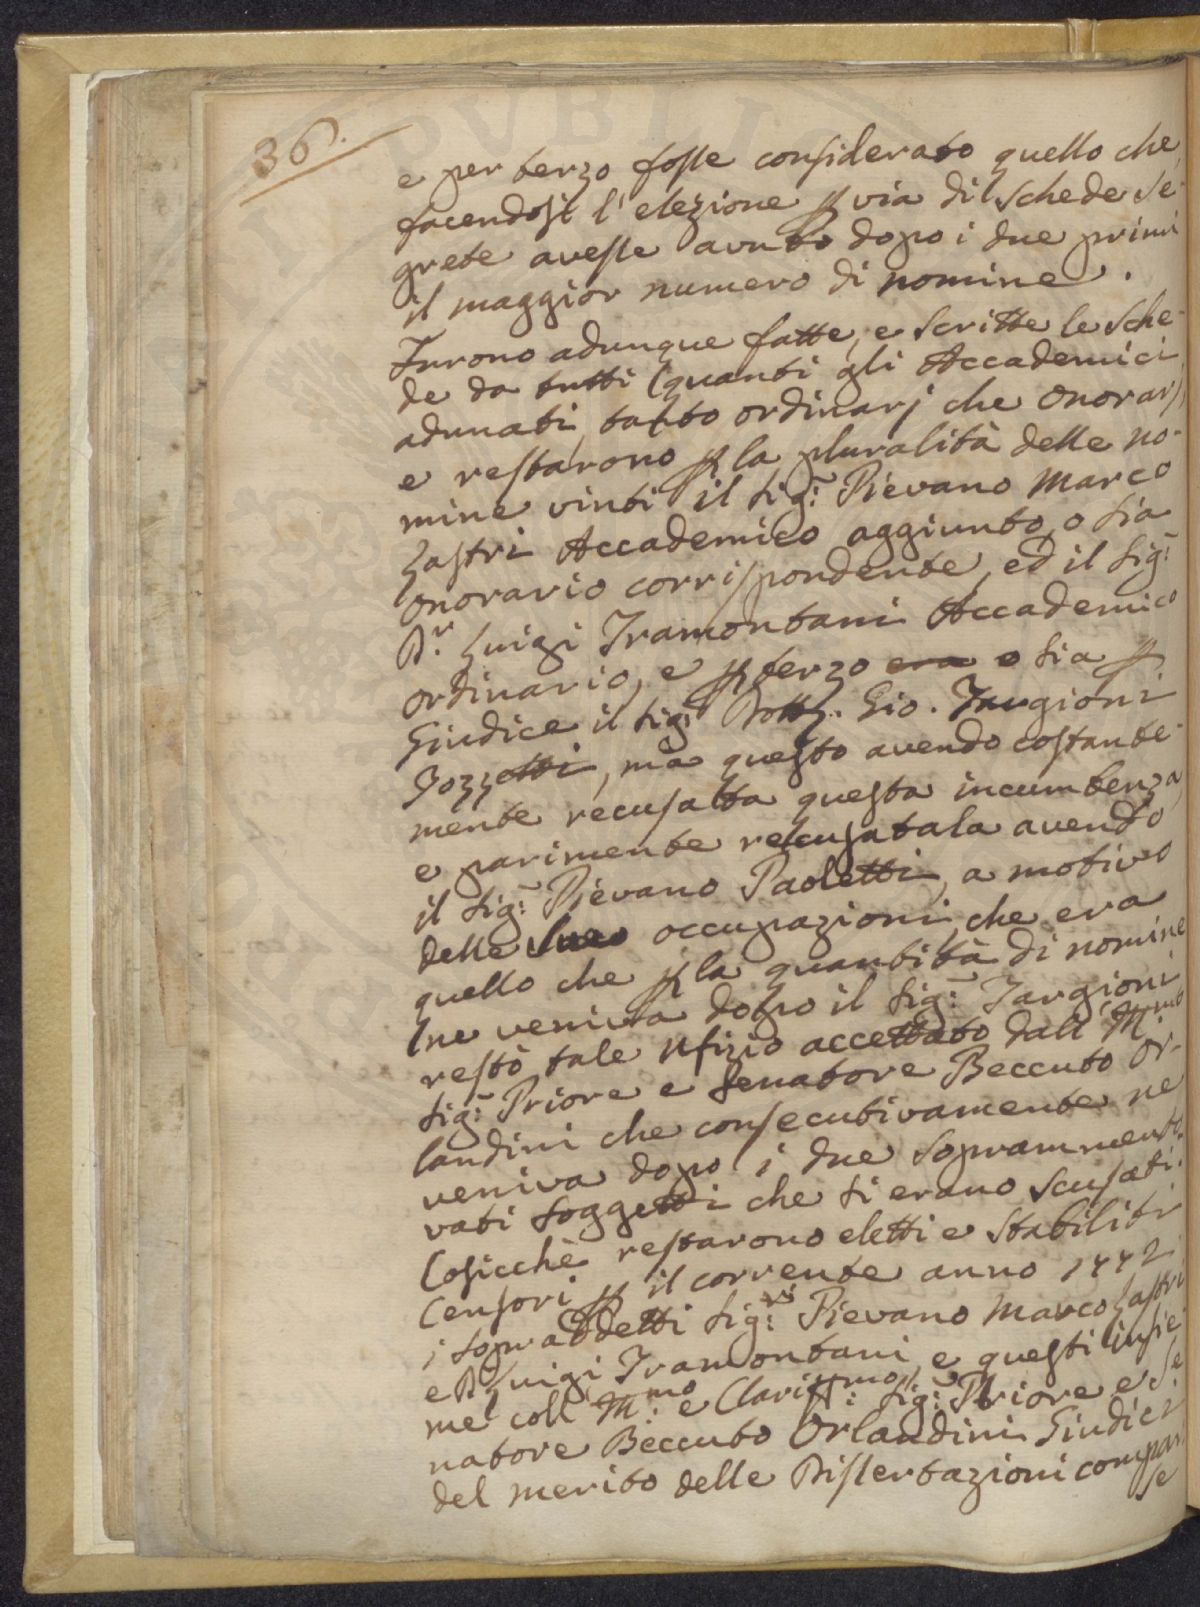 36.
e per terzo fosse considerato quello che,
facendosi l'elezione p via di schede se-
grete avesse avuto dopo i due primi
il maggior numero di nomine.
Furono adunque fatte, e scritte le sche-
de da tutti quanti gli Accademici
adunati, tanto ordinarj che onorarj,
e restarono p la pluralità delle no-
mine vinti il Sig.r Pievano Marco
Lastri Accademico aggiunto, o sia
onorario corrispondente, ed il Sig.r
D.r Luigi Tramontani Accademico
ordinario, e p terzo era o sia p
Giudice il Sig.r Dott. Gio. Targioni
Tozzetti, ma questo avendo costante-
mente recusatta questa incumbenza,
e parimente recusatala avendo
il Sig.r Pievano Paoletti, a motivo
delle sue occupazioni, che era
quello che p la quantità di nomine
ne veniva dopo il Sig.r Targioni
restò tale Ufizio accettato dall'Ill.mo
Sig.r Priore e Senatore Beccuto Or-
landini che consecutivamente ne
veniva dopo i due soprammento-
vati soggetti che si erano scusati.
Cosicchè restarono eletti e stabiliti
Censori p il corrente anno 1772
i sopraddetti Sig.ri Pievano Marco Lastri
e D. Luigi Tramontani, e questi insie-
me coll'Ill.mo e Clariss.mo Sig.r Priore e Se-
natore Beccuto Orlandini Giudici
del merito delle Dissertazioni compar-
se